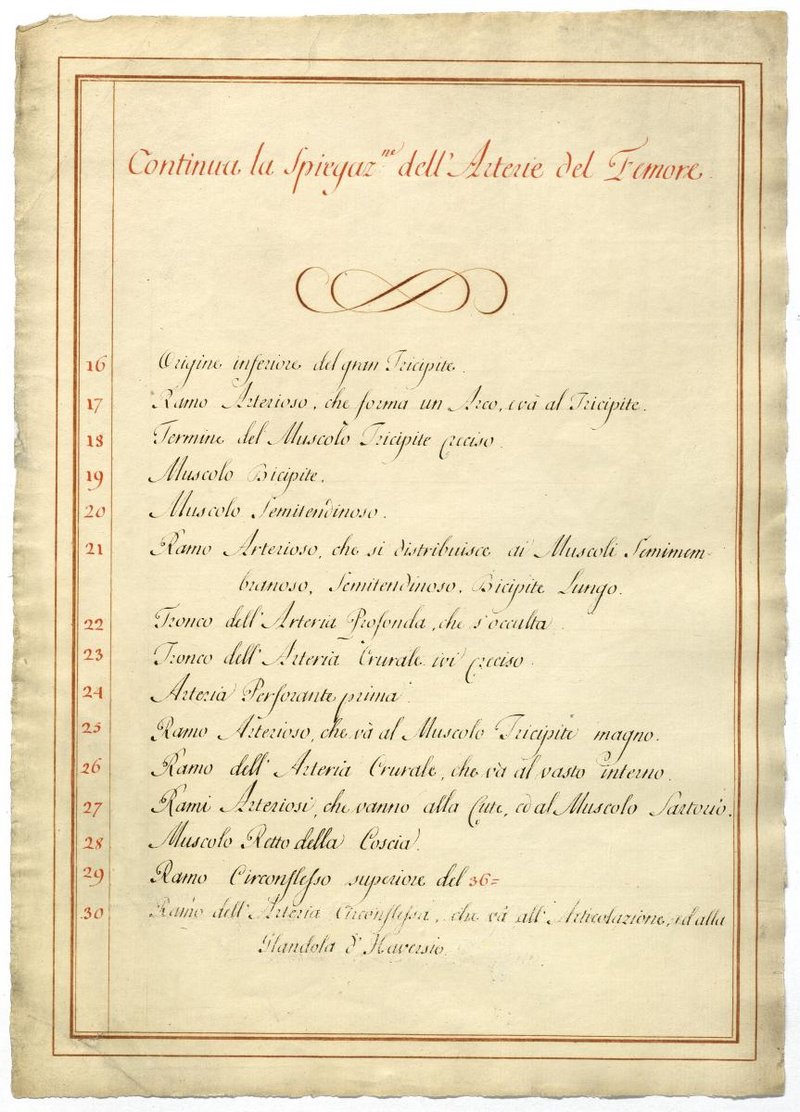 Continua la Spiegaz.ne dell'Arterie del Femore.
16 Origine inferiore del gran Tricipite.
17 Ramo Arterioso, che forma un Arco, e và al Tricipite.
18 Termine del Muscolo Tricipite reciso.
19 Muscolo Bicipite.
20 Muscolo Semitendinoso.
21 Ramo Arterioso, che si distribuisce ai Muscoli Semimem-
branoso, Semitendinoso, Bicipite Lungo.
22 Tronco dell'Arteria Profonda, che s'occulta.
23 Tronco dell'Arteria Crurale ivi reciso.
24 Arteria Perforante prima
25 Ramo Arterioso, che và al Muscolo Tricipite magno.
26 Ramo dell'Arteria Crurale, che và al vasto interno.
27 Rami Arteriosi, che vanno alla Cute, ed al Muscolo Sartorio.
28 Muscolo Retto della Coscia.
29 Ramo Circonflesso superiore del 36=
30 Ramo dell'Arteria Circonflessa, che và all'Articolazione, ed alla
Glandola d'Haversio.